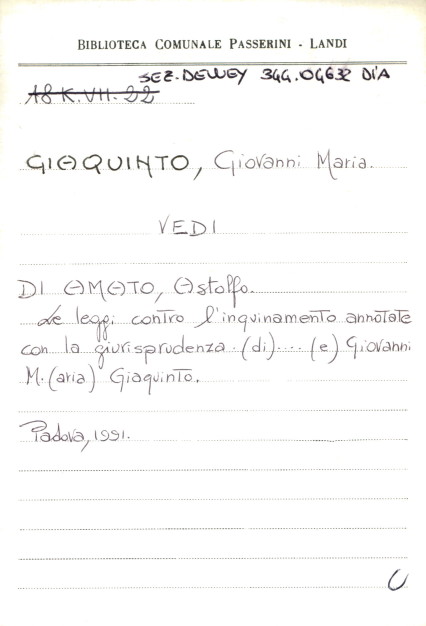 BIBLIOTECA COMUNALE PASSERINI - LANDI
SEZ. DEWEY 344.04632 DIA
A8 K.VII.22
GIAQUINTO, Giovanni Maria.
VEDI
DI AMATO, Astolfo.
Le leggi contro l'inquinamento annotate
con la giurisprudenza. (di).... (e) Giovanni
M. (aria) Giaquinto.
Padova, 1991.